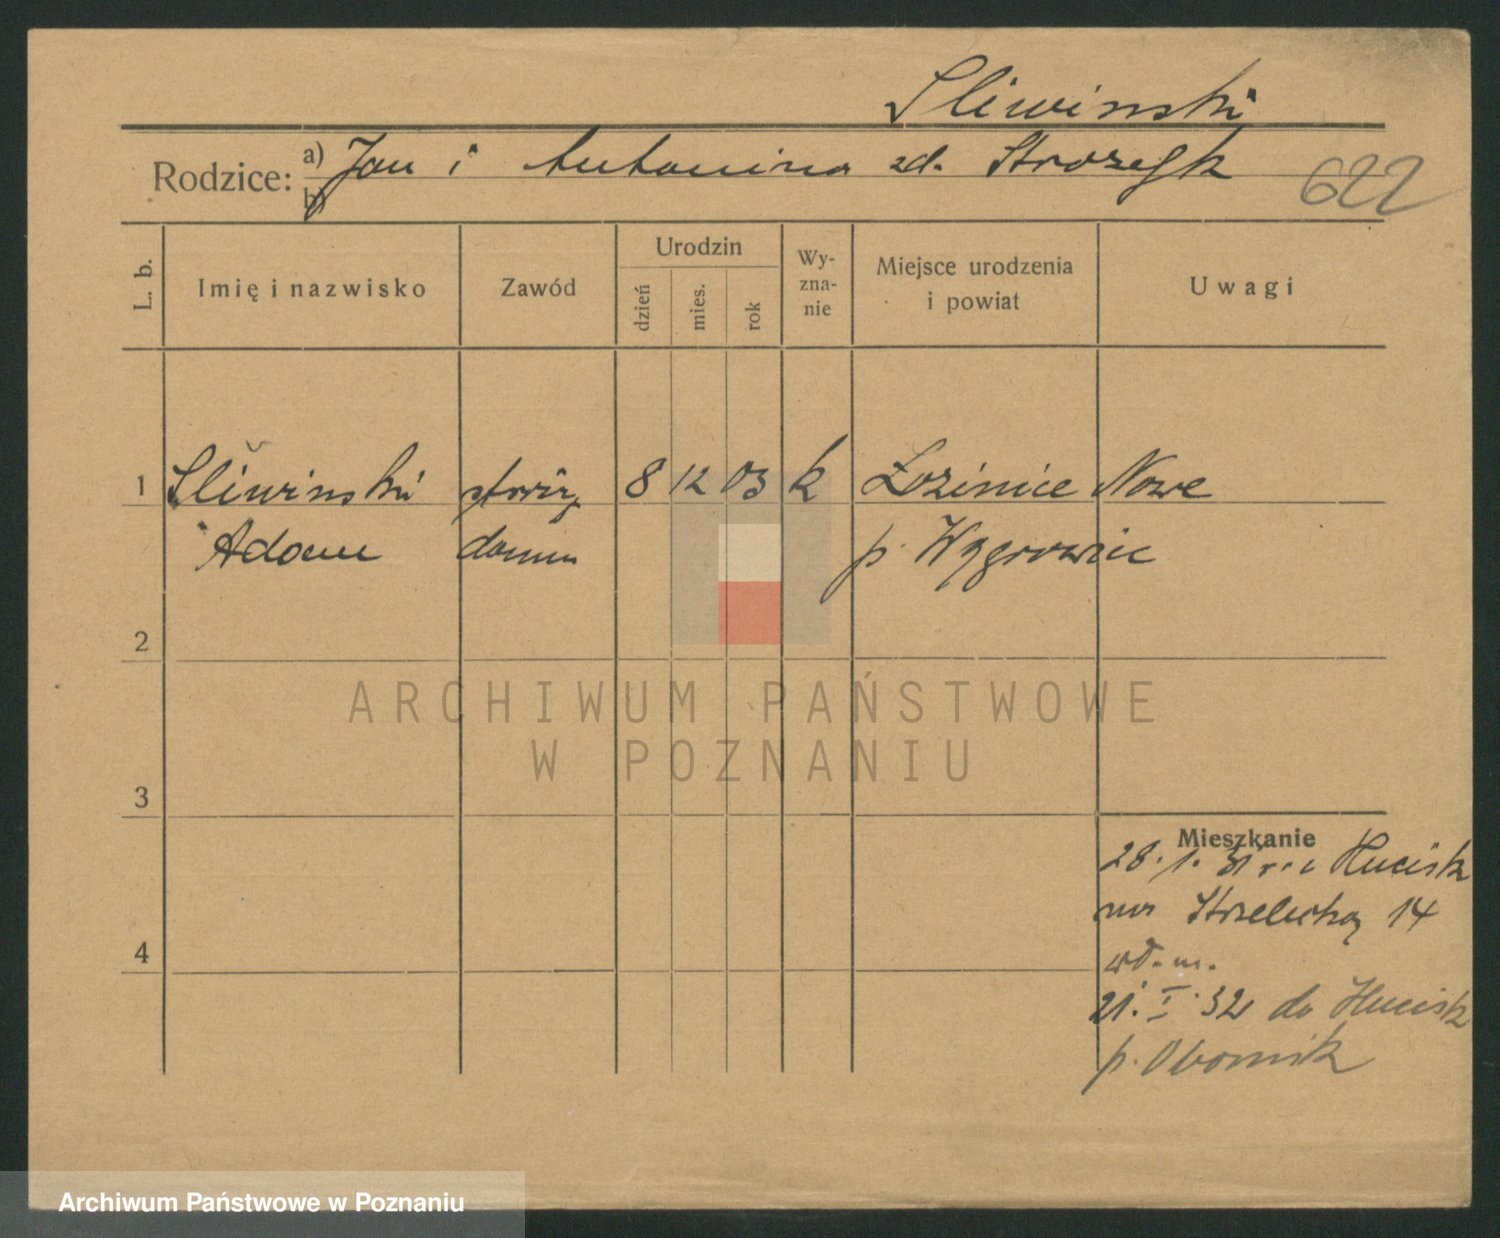 Sliwinski
Rodzice: a) Jan i Antonina zd. Strozyk
b)
622
L. b.
Imię i nazwisko
Zawód
Urodzin
dzień
mies.
rok
Wy-
zna-
nie
Miejsce urodzenia
i powiat
Uwagi
1 Śliwinski 8 12 03 k Łozinice Nowe
Adam p. Wągrowiec
2
ARCHIWUM PAŃSTWOWE
W POZNANIU
3
Mieszkanie
28. 1. 31 Hucisk
na Strzelecką 14
wł. m.
21. I. 32 do Hucisk
p. Obornik
4
Archiwum Państwowe w Poznaniu